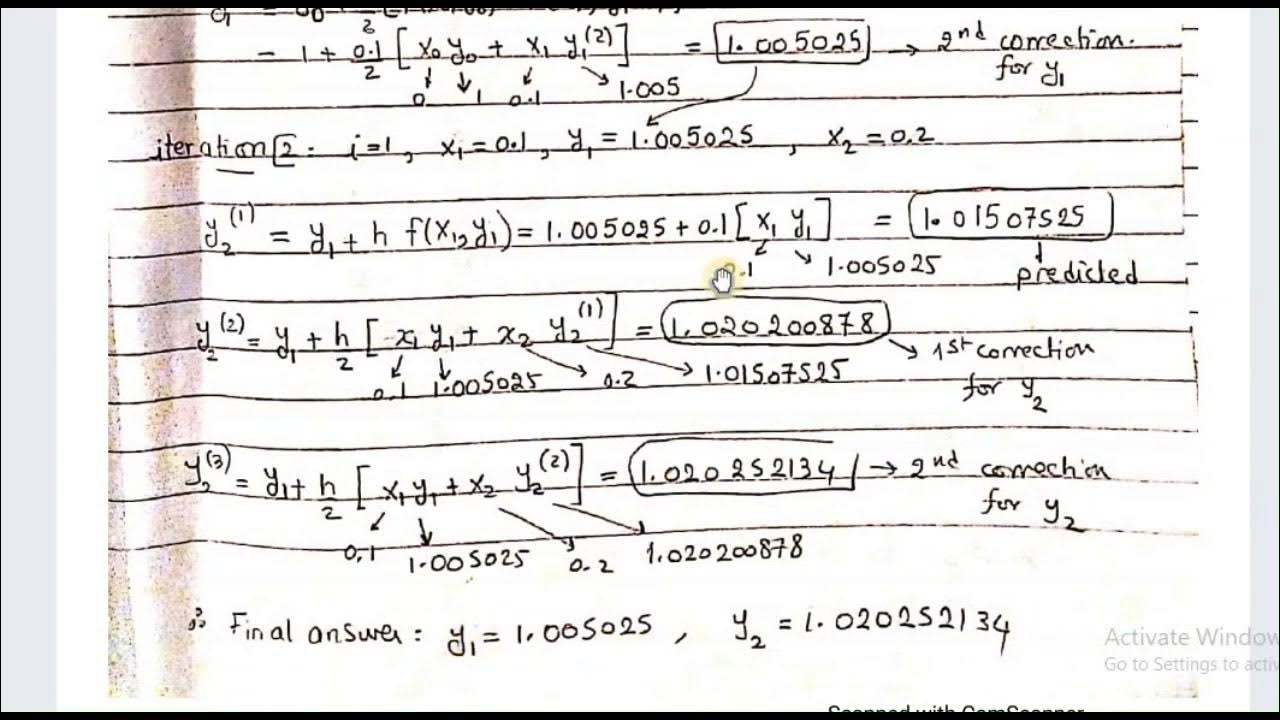 = 1 + 0.1/2 [x₀ y₀ + x₁ y₁⁽²⁾] = 1.005025 → 2nd correction.
for y₁
0 1 0.1 1.005
iteration 2: i=1, x₁=0.1, y₁ = 1.005025, x₂=0.2
y₂⁽¹⁾ = y₁ + h f(x₁, y₁) = 1.005025 + 0.1 [x₁ y₁] = 1.01507525
.1 1.005025 predicted
y₂⁽²⁾ = y₁ + h/2 [x₁ y₁ + x₂ y₂⁽¹⁾] = 1.020200878
→ 1st correction
0.1 1.005025 0.2 1.01507525
for y₂
y₂⁽³⁾ = y₁ + h/2 [x₁ y₁ + x₂ y₂⁽²⁾] = 1.020252134 → 2nd correction
for y₂
0.1 1.005025 0.2 1.020200878
∴ Final answer: y₁ = 1.005025, y₂ = 1.020252134
Activate Window
Go to Settings to activ
Scanned with CamScanner